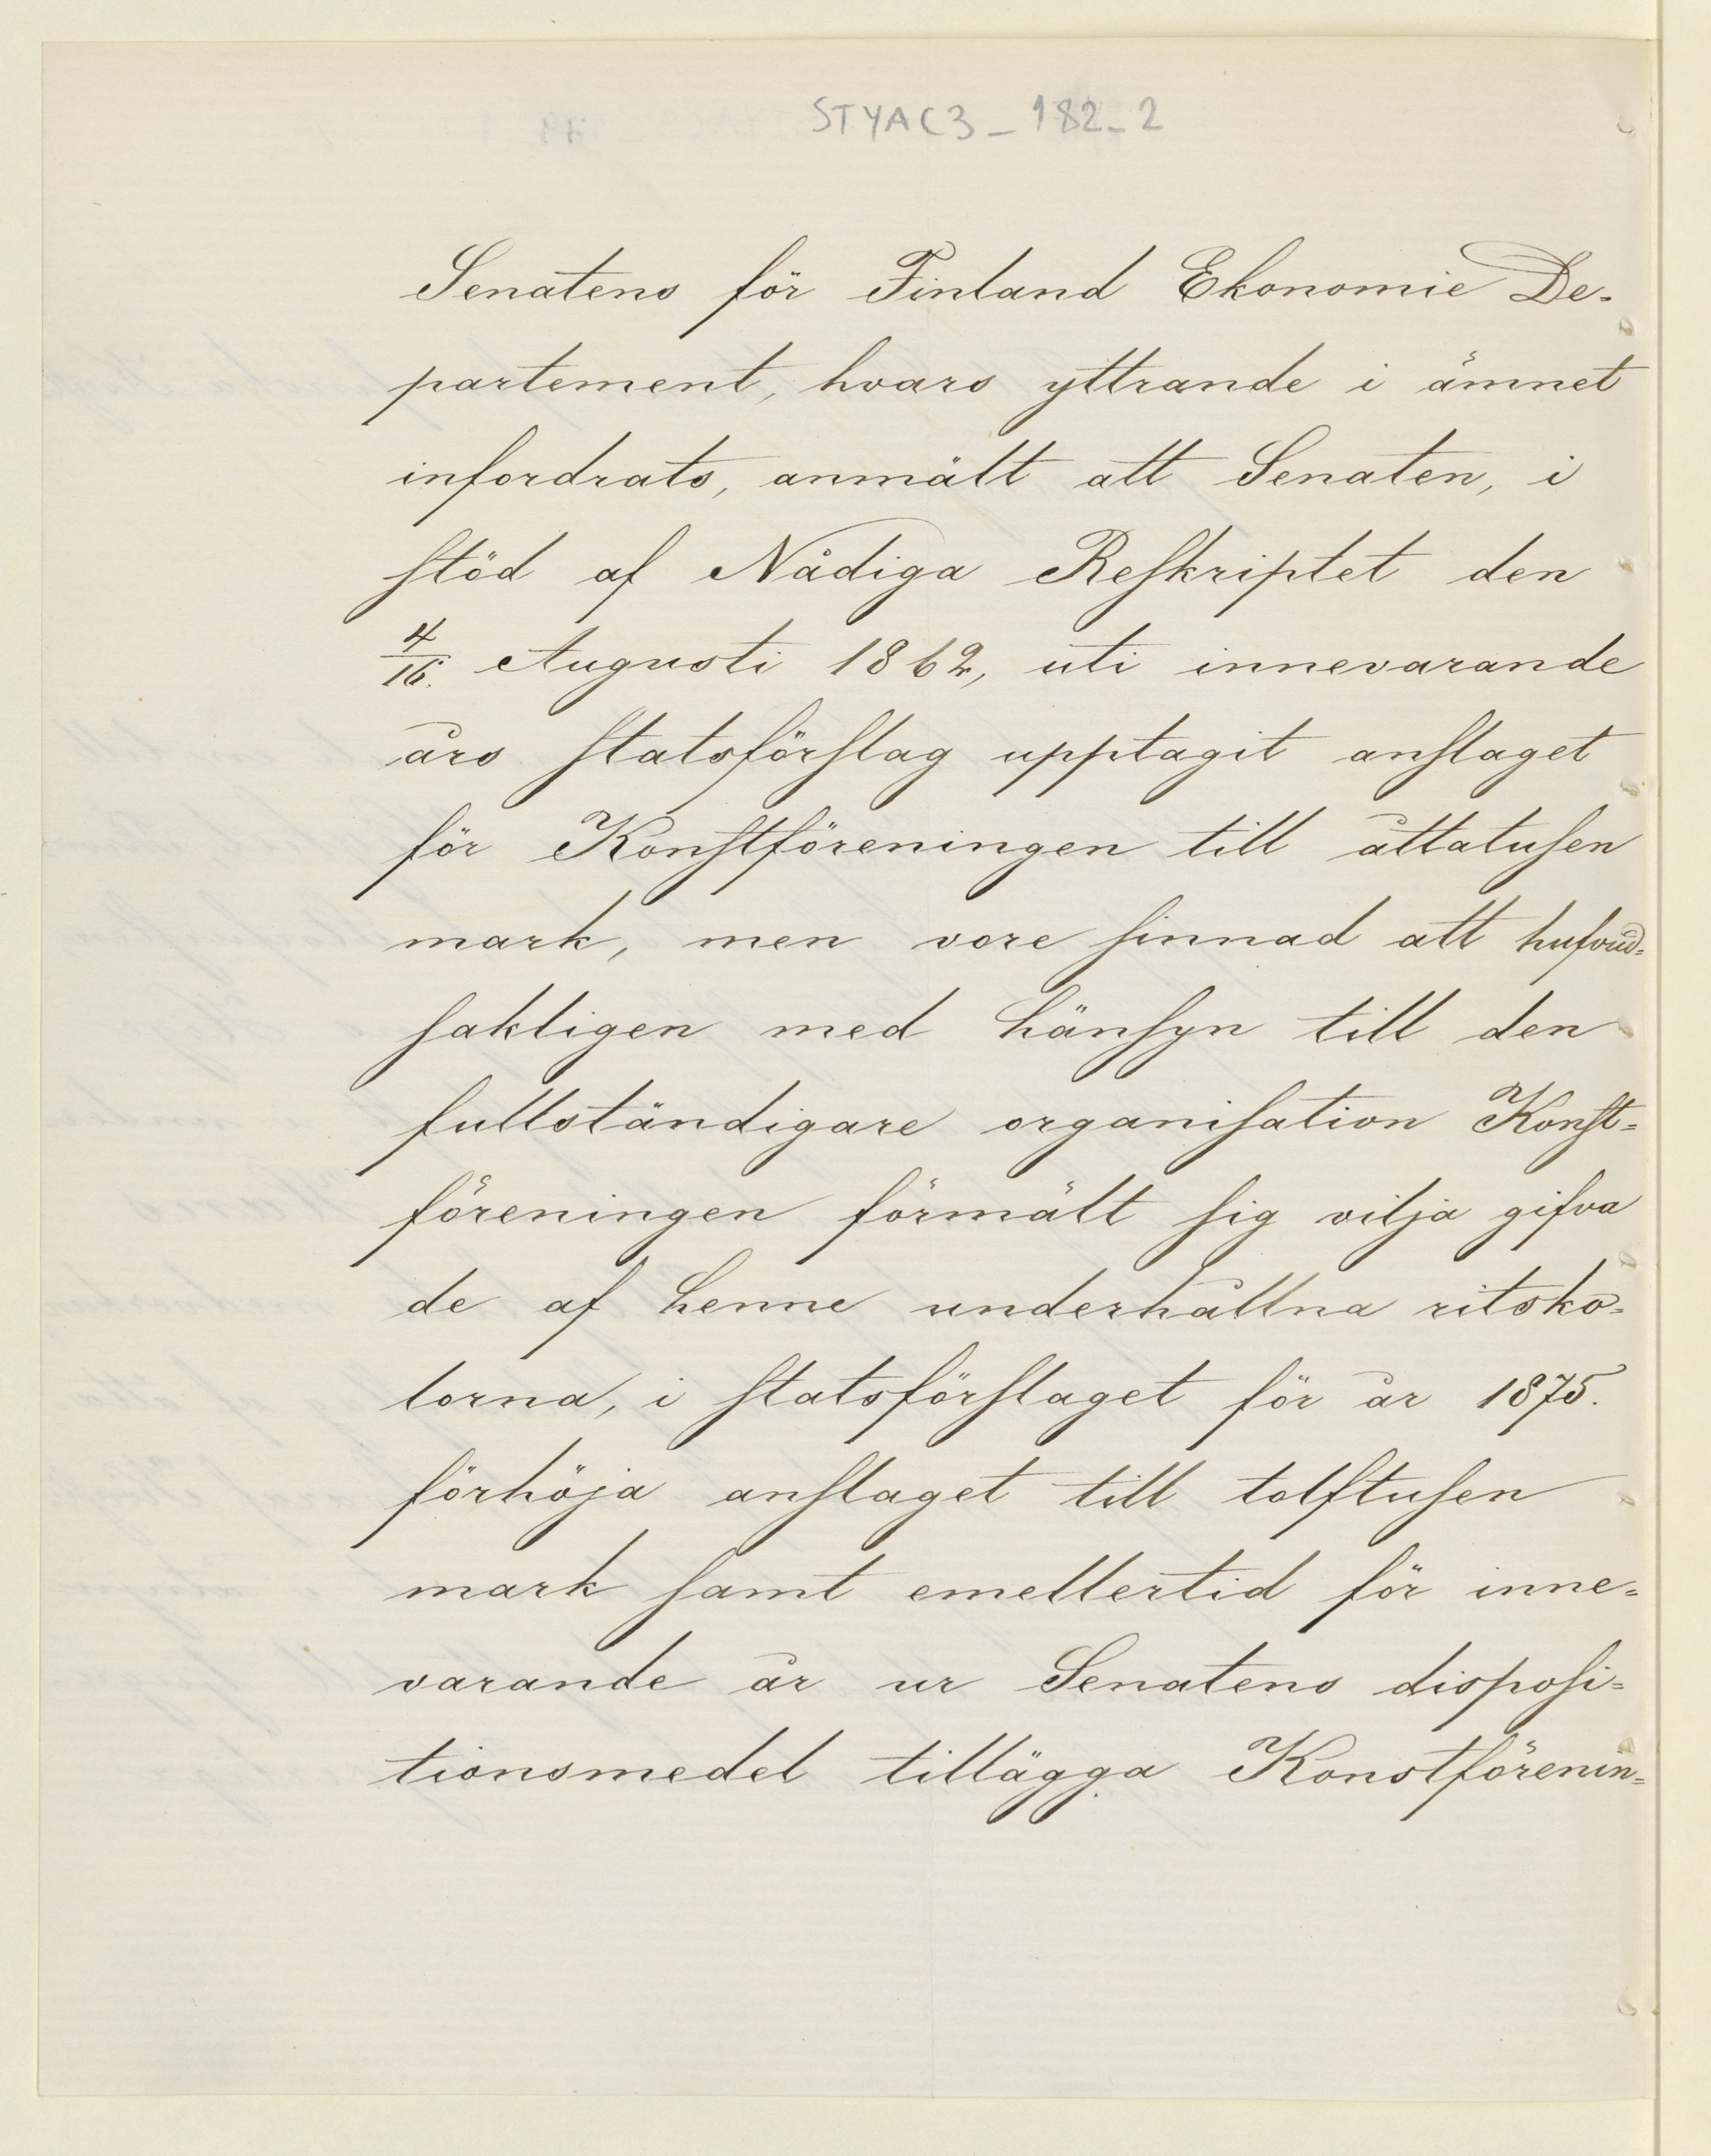 STYAC3_182_2
Senatens för Finland Ekonomie De-
partement, hvars yttrande i ämnet
infordrats, anmält att Senaten, i
stöd af Nådiga Reskriptet den
4/16. Augusti 1862, uti innevarande
års statsförslag upptagit anslaget
för Konstföreningen till åttatusen
mark, men vore sinnad att hufvud=
sakligen med hänsyn till den
fullständigare organisation Konst=
föreningen förmält sig vilja gifva
de af henne underhållna ritsko=
lorna, i statsförslaget för år 1875.
förhöja anslaget till tolftusen
mark samt emellertid för inne=
varande år ur Senatens disposi=
tionsmedel tillägga Konstförenin=